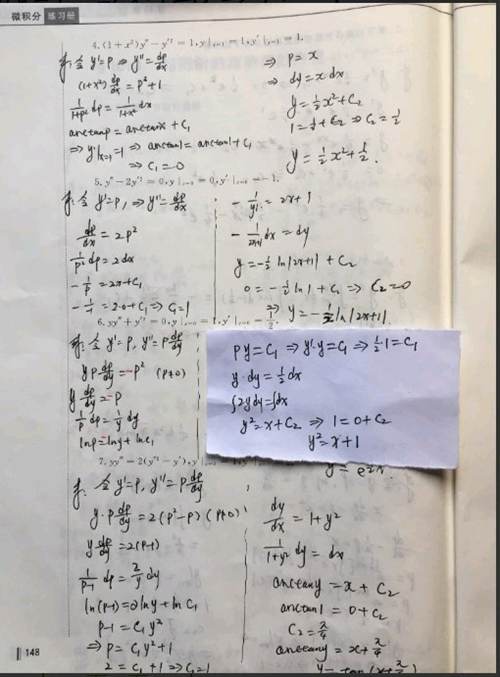 微积分 练习册
4. (1+x²)y″-y′²=1, y|ₓ₌₁=1, y′|ₓ₌₁=1.
解: 令 y′=P ⇒ y″=dp/dx
(1+x²)dp/dx = p²+1
1/(1+p²) dp = 1/(1+x²) dx
arctanp = arctanx + C₁
⇒ y′|ₓ₌₁=1 ⇒ arctan1 = arctan1 + C₁
⇒ C₁=0
⇒ p=x
⇒ dy=x dx
y=½x²+C₂
1=½+C₂ ⇒ C₂=½
y=½x²+½.
5. y″-2y′²=0, y|ₓ₌₀=0, y′|ₓ₌₀=-1.
解: 令 y′=P, ⇒ y″=dp/dx
dp/dx = 2p²
1/p² dp = 2dx
-1/p = 2x+C₁
-1/-1 = 2·0+C₁ ⇒ C₁=1
-1/y′ = 2x+1
-1/(2x+1) dx = dy
y=-½ln|2x+1| + C₂
0=-½ln1+C₂ ⇒ C₂=0
⇒ y=-½ln|2x+1|
6. yy″+y′²=0, y|ₓ₌₀=1, y′|ₓ₌₀=1/2.
解: 令 y′=P, y″=P dp/dy
y P dp/dy = -P² (P≠0)
y dp/dy = -P
1/P dp = 1/y dy
lnp=lny+lnC₁
Py=C₁ ⇒ y′·y=C₁ ⇒ ½·1=C₁
y·dy=½dx
∫2y dy=∫dx
y²=x+C₂ ⇒ 1=0+C₂
y²=x+1
7. yy″=2(y′²-y′), y
解: 令 y′=P, y″=P dp/dy
y·P dp/dy = 2(P²-P) (P≠0)
y dp/dy = 2(P-1)
1/(P-1) dp = 2/y dy
ln(P-1)=2lny+lnC₁
P-1=C₁y²
⇒ P=C₁y²+1
2=C₁+1 ⇒ C₁=1
dy/dx = 1+y²
1/(1+y²) dy = dx
arctany = x + C₂
arctan1 = 0+C₂
C₂=π/4
arctany = x+π/4
y=tan(x+π/4)
148